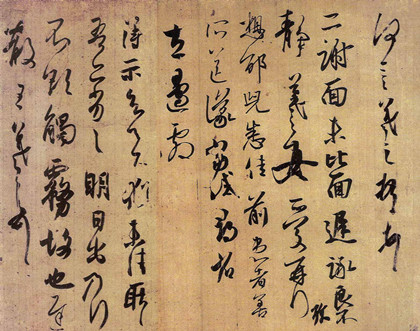 羲之
二謝面未比面遲詠良不
靜羲之女愛再拜
想邵兒悉佳前患者善
所送議當試尋省
左邊劇
得示知足下猶未佳耿耿
吾亦劣劣明日出乃行
不欲觸霧故也遲
散王羲之頓首